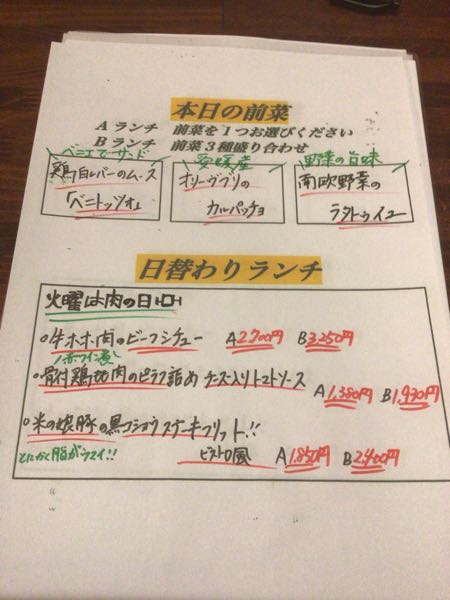 本日の前菜
Aランチ 前菜を1つお選びください
Bランチ 前菜3種盛り合わせ
鶏白レバーのムース
「ベニトッツォ」
オリーヴブリの
カルパッチョ
野菜の旨味
南欧野菜の
ラタトゥイユ
日替わりランチ
火曜は肉の日
・牛ホホ肉のビーフシチュー A2,700円 B3,250円
赤ワイン煮
・骨付鶏もも肉のピラフ詰め チーズ入りトマトソース
A1,380円 B1,930円
・米の娘豚の黒コショウステーキフリット!!
とにかく脂がウマイ!! ビストロ風 A1,850円 B2,400円